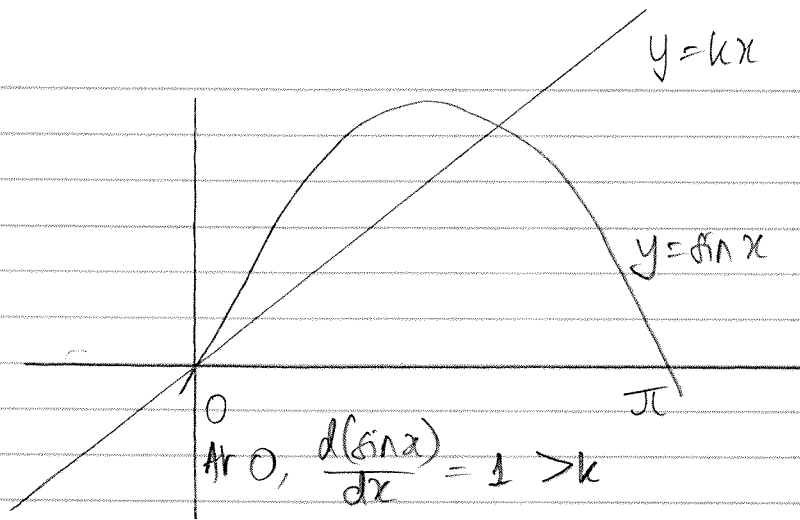 y=kx
y=sin x
O
π
At O, d(sin x)/dx = 1 > k